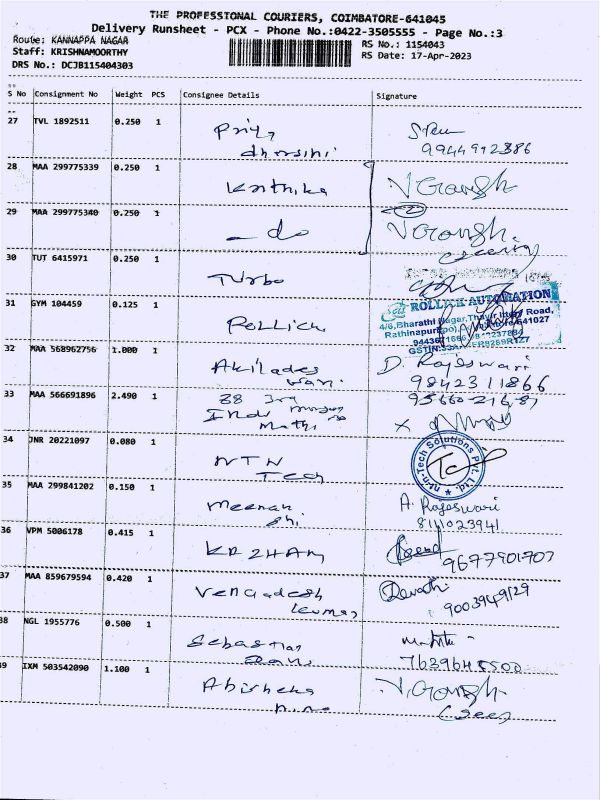 THE PROFESSIONAL COURIERS, COIMBATORE-641045
Delivery Runsheet - PCX - Phone No.:0422-3505555 - Page No.:3
Route: KANNAPPA NAGAR
Staff: KRISHNAMOORTHY
DRS No.: DCJB115404303
RS No.: 1154043
RS Date: 17-Apr-2023
S No Consignment No Weight PCS Consignee Details Signature
27 TVL 1892511 0.250 1 Priya
dharsini 9944912386
28 MAA 299775339 0.250 1 Karthika
29 MAA 299775340 0.250 1 - do
30 TUT 6415971 0.250 1 Turbo
31 GYM 104459 0.125 1 Rollick
ROLLICK AUTOMATION
4/6, Bharathi Nagar, Road,
Rathinapuri 641027
32 MAA 568962756 1.000 1 Akilades
wari D. Rajeswari
9842311866
33 MAA 566691896 2.490 1 38 3rd
34 JNR 20221097 0.080 1 NTN
Tech
ntn-Tech Solutions Pvt. Ltd.
35 MAA 299841202 0.150 1 Meenak
shi A. Rajeswari
8111023941
36 VPM 5006178 0.415 1 9677901707
37 MAA 859679594 0.420 1 Vengadesh
kumar Revathi
9003949129
38 NGL 1955776 0.500 1 Sebastian
39 IXM 503542090 1.100 1 Abisheka